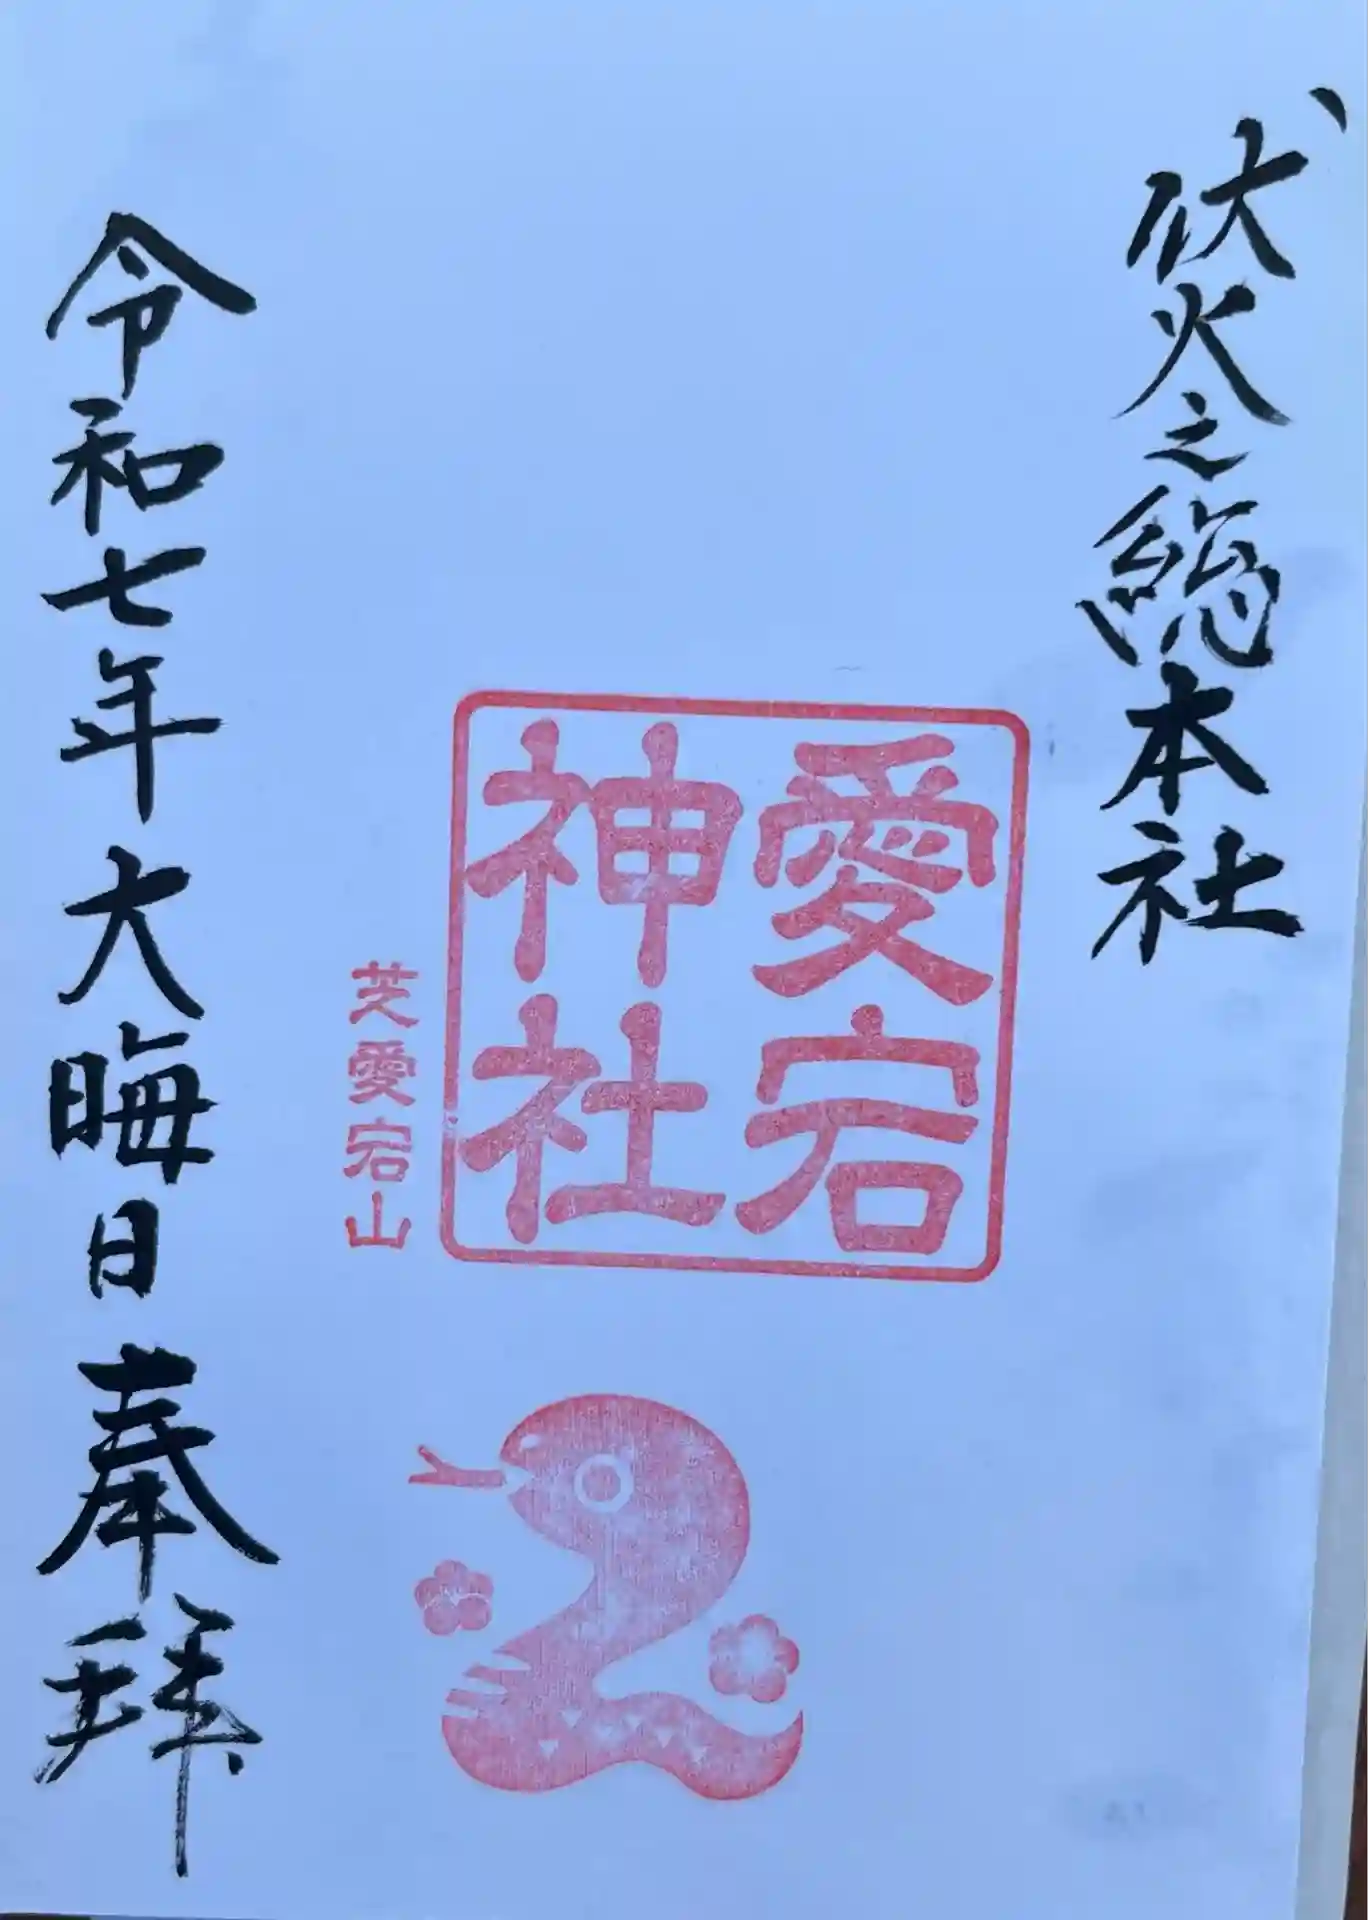 伏火之總本社
愛宕
神社
芝愛宕山
令和七年大晦日奉拜